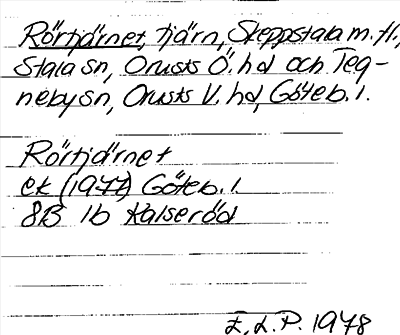 Rörtjärnet, tjärn, Skeppstala m. fl.,
Stala sn, Orusts Ö. hd och Teg-
neby sn, Orusts V. hd, Göteb. l.
Rörtjärnet
ek (1977) Göteb. l.
8B 1b Kalseröd
E.L.P. 1978